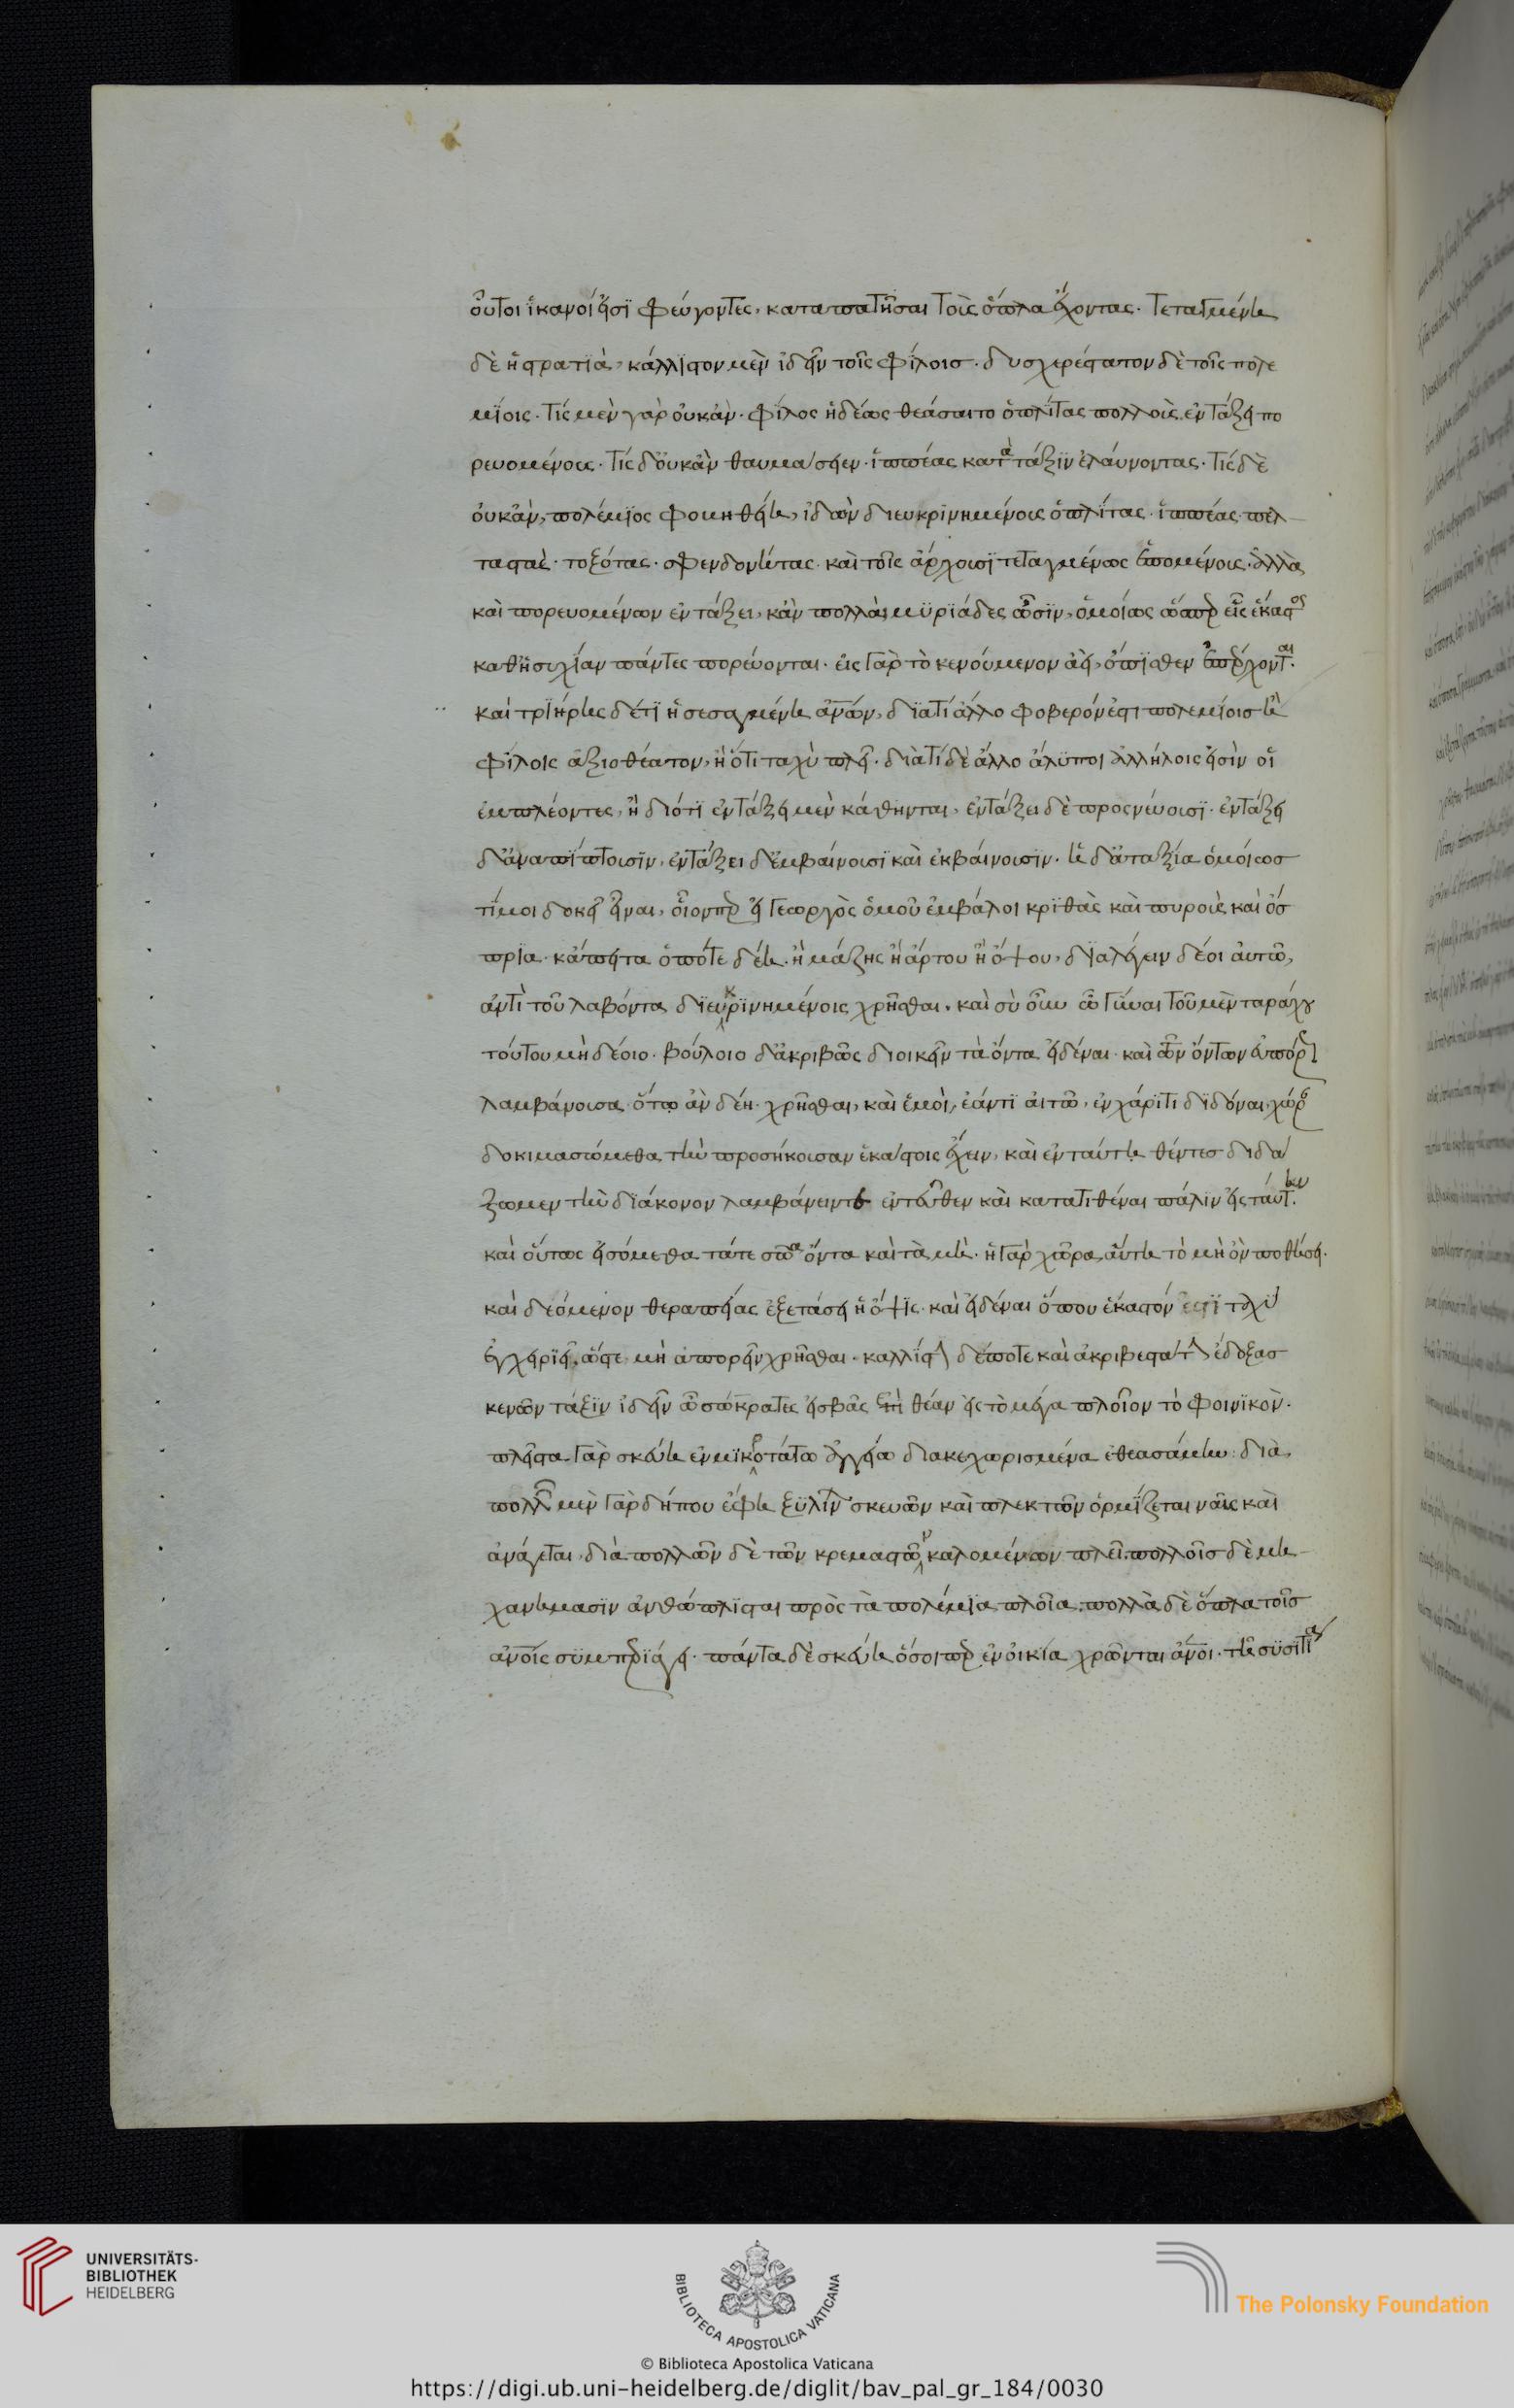 οὗτοι ἱκανοί εἰσϊ φεύγοντες, καταπατῆσαι τοὺς ὅπλα ἔχοντας. τεταγμένη
δὲ ἡ στρατϊὰ, κάλλιστον μὲν ἰδεῖν τοῖς φίλοισ. δυσχερέστατον δὲ τοῖς πολε
μίοις. τίς μὲν γὰρ οὐκ ἂν. φίλος ἡδέως θεάσαιτο ὁπλίτας πολλοὺς, ἐν τάξει πο
ρευομένους. τίς δ' οὐκ ἂν θαυμάσειεν. ἱππέας κατὰ τάξϊν ἐλαύνοντας. τίς δὲ
οὐκ ἂν, πολέμϊος φοβηθείη, ἰδὼν διευκρϊνημένους ὁπλίτας. ἱππέας. πελ
ταστάς. τοξότας. σφενδονήτας. καὶ τοῖς ἄρχουσϊ τεταγμένως ἑπομένους. ἀλλὰ
καὶ πορευομένων ἐν τάξει, κἂν πολλαὶ μϋρϊάδες ὦσϊν, ὁμοίως ὥσπερ εἷς ἕκαστος
καθ' ἡσυχίαν πάντες πορεύονται. εἰς γὰρ τὸ κενούμενον ἀεὶ, ὄπϊσθεν ἐπέρχονται.
καὶ τρϊήρης δέ τϊ ἡ σεσαγμένη ἀν̅ων, διατί ἄλλο φοβερόν ἐστι πολεμίοισ ἢ
φίλοις ἀξιοθέατον, ἢ ὅτι ταχὺ πλεῖ. διατί δὲ ἄλλο ἄλϋποι ἀλλήλοις εἰσὶν οἱ
ἐμπλέοντες, ἢ διότϊ ἐν τάξει μὲν κάθηνται, ἐν τάξει δὲ προσνεύουσϊ. ἐν τάξει
δ' ἀναπϊπτουσϊν, ἐν τάξει δ' ἐμβαίνουσϊ καὶ ἐκβαίνουσϊν. ἡ δ' ἀταξία ὁμοίωσ
τί μοι δοκεῖ εἶναι, οἷονπερ εἰ γεωργὸς ὁμοῦ ἐμβάλοι κρϊθὰς καὶ πυροὺς καὶ ὄσ
πρϊα. κἄπειτα ὁπότε δέῃ. ἢ μάζης ἢ ἄρτου ἢ ὄψου, δϊαλέγειν δέοι αὐτῶ,
ἀντὶ τοῦ λαβόντα δϊευκρϊνημένοις χρῆσθαι. καὶ σὺ οὖν ὦ γύναι τοῦ μὲν ταράχου
τούτου μὴ δέοιο. βούλοιο δ' ἀκριβῶς διοικεῖν τὰ ὄντα εἰδέναι. καὶ τῶν ὄντων εὐπόρως
λαμβάνουσα ὅτω ἂν δέῃ. χρῆσθαι, καὶ ἐμοὶ, ἐάν τϊ αἰτῶ, ἐν χάρϊτι δϊδόναι, χώραν
δοκιμασώμεθα τὴν προσήκουσαν ἑκάστοις ἔχειν, καὶ ἐν ταύτη θέντεσ διδά
ξωμεν τὴν δϊάκονον λαμβάνειν τε ἐντεῦθεν καὶ κατατιθέναι πάλιν εἰς ταύτην.
καὶ οὕτως εἰσόμεθα τά τε σῶα ὄντα καὶ τὰ μὴ. ἡ γὰρ χώρα αὐτὴ τὸ μὴ ὂν ποθήσει.
καὶ δεόμενον θεραπείας ἐξετάσει ἡ ὄψϊς. καὶ εἰδέναι ὅπου ἕκαστόν ἐστϊ ταχὺ
ἐγχειρϊεῖ, ὥστε μὴ ἀπορεῖν χρῆσθαι. καλλίστην δέ ποτε καὶ ἀκριβεστάτην ἔδοξα σ
κευῶν τάξϊν ἰδεῖν ὦ σώκρατες εἰσβὰς ἐπὶ θέαν εἰς τὸ μέγα πλοῖον τὸ φοινϊκὸν.
πλεῖστα γὰρ σκεύη ἐν μϊκροτάτω ἀγγείω διακεχωρισμένα ἐθεασάμην: διὰ
πολλῶν μὲν γὰρ δήπου ἔφη ξϋλίνων σκευῶν καὶ πλεκτῶν ὁρμίζεται ναῦς καὶ
ἀνάγεται, διὰ πολλῶν δὲ τῶν κρεμαστῶν καλομένων πλεῖ. πολλοῖσ δὲ μη
χανήμασϊν ἀνθώπλϊσται πρὸς τὰ πολέμϊα πλοῖα. πολλὰ δὲ ὅπλα τοῖσ
ἀν̅οις σϋμπερϊάγει. πάντα δὲ σκεύη ὅσοιπερ ἐν οἰκία χρῶνται ἀν̅οι. τῆ σϋσιτία
UNIVERSITÄTS-
BIBLIOTHEK
HEIDELBERG
BIBLIOTECA APOSTOLICA VATICANA
The Polonsky Foundation
© Biblioteca Apostolica Vaticana
https://digi.ub.uni-heidelberg.de/diglit/bav_pal_gr_184/0030